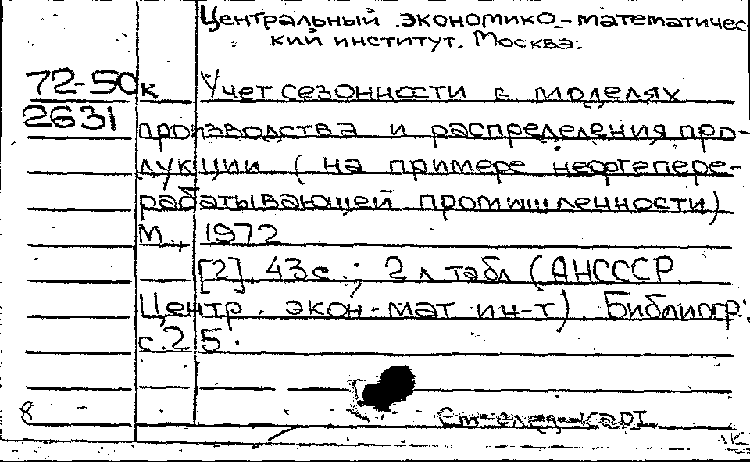 Центральный экономико-математичес
кий институт. Москва.
72-50к Учет сезонности в моделях
2631 производства и распределения про-
дукции (на примере нефтепере-
рабатывающей промышленности)
М., 1972
[2], 43с.; 2 л табл (АНСССР
Центр. экон-мат ин-т). Библиогр.
с.25.
8 См след карт